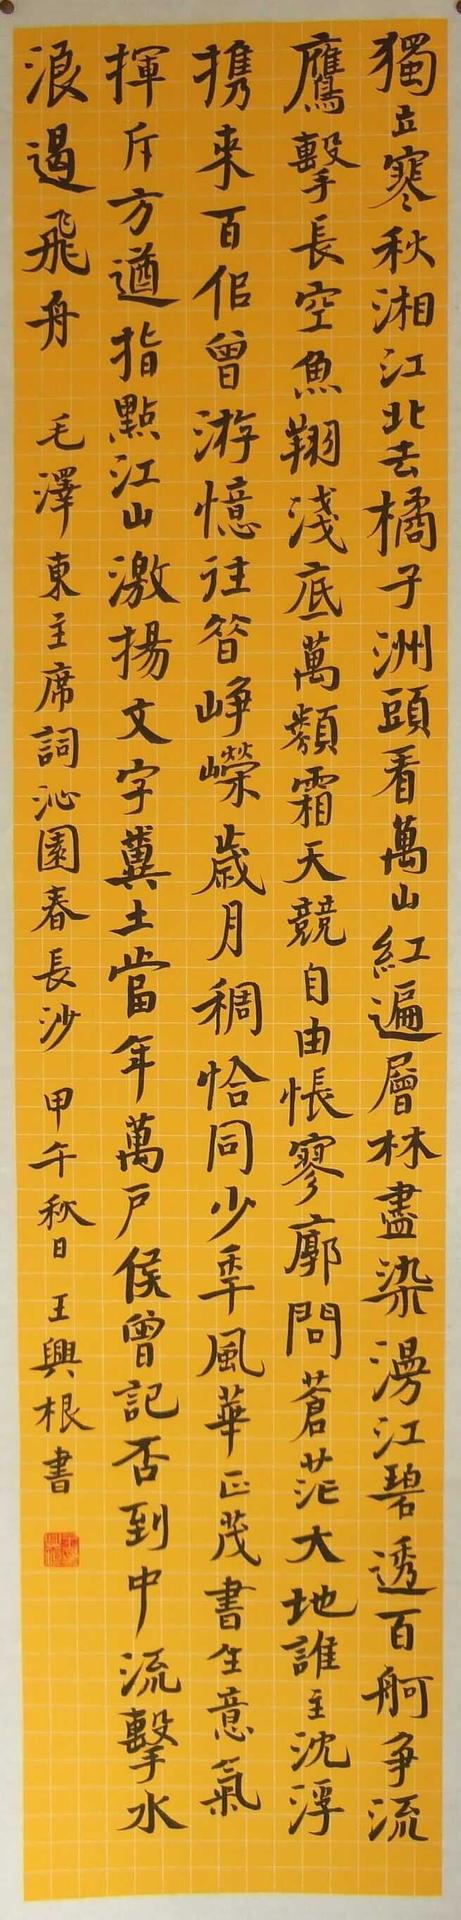 獨立寒秋湘江北去橘子洲頭看萬山紅遍層林盡染漫江碧透百舸爭流
鷹擊長空魚翔淺底萬類霜天競自由悵寥廓問蒼茫大地誰主沈浮
携來百侶曾游憶往昝崢嶸歲月稠恰同少年風華正茂書生意氣
揮斥方遒指點江山激揚文字糞土當年萬戶侯曾記否到中流擊水
浪遏飛舟 毛澤東主席詞沁園春長沙 甲午秋日 王興根書